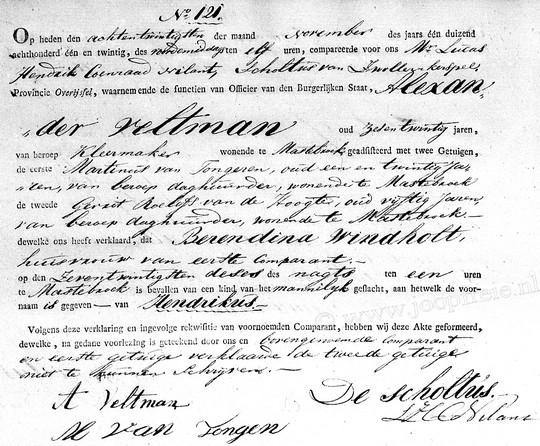 No. 121.
Op heden den achtentwintigsten der maand November des jaars één duizend
achthonderd één en twintig, des voordemiddags ten elf uren, compareerde voor ons Mr. Lucas
Hendrik Coenraad Nilant, Scholtus van Zwollerkerspel,
Provincie Overijssel, waarnemende de functien van Officier van den Burgerlijken Staat, Alexan-
der Veltman oud zesentwintig jaren,
van beroep Kleermaker wonende te Mastebroek geadsisteerd met twee Getuigen,
de eerste Martinus van Tongeren, oud een en twintig Ja-
ren, van beroep daghuurder, wonende te Mastebroek
de tweede Gerrit Roelofs van de Hoogte, oud vijftig Jaren,
van beroep daghuurder, wonende te Mastebroek.—
dewelke ons heeft verklaard, dat Berendina Windholt,
huisvrouw van eerste Comparant.—
op den zeventwintigsten deses des nagts ten een uren
te Mastebroek is bevallen van een kind van het mannelijk geslacht, aan hetwelk de voor-
naam is gegeven — van Hendrikus.
Volgens deze verklaring en ingevolge rekwisitie van voornoemden Comparant, hebben wij deze Akte geformeerd,
dewelke, na gedane voorlezing is geteekend door ons en bovengenoemde Comparant
en eerste getuige verklaarde de tweede getuige
niet te kunnen Schrijven.—
A Veltman
De Scholtus.
LHC Nilant
M Van Tongen
www.joopheise.nl